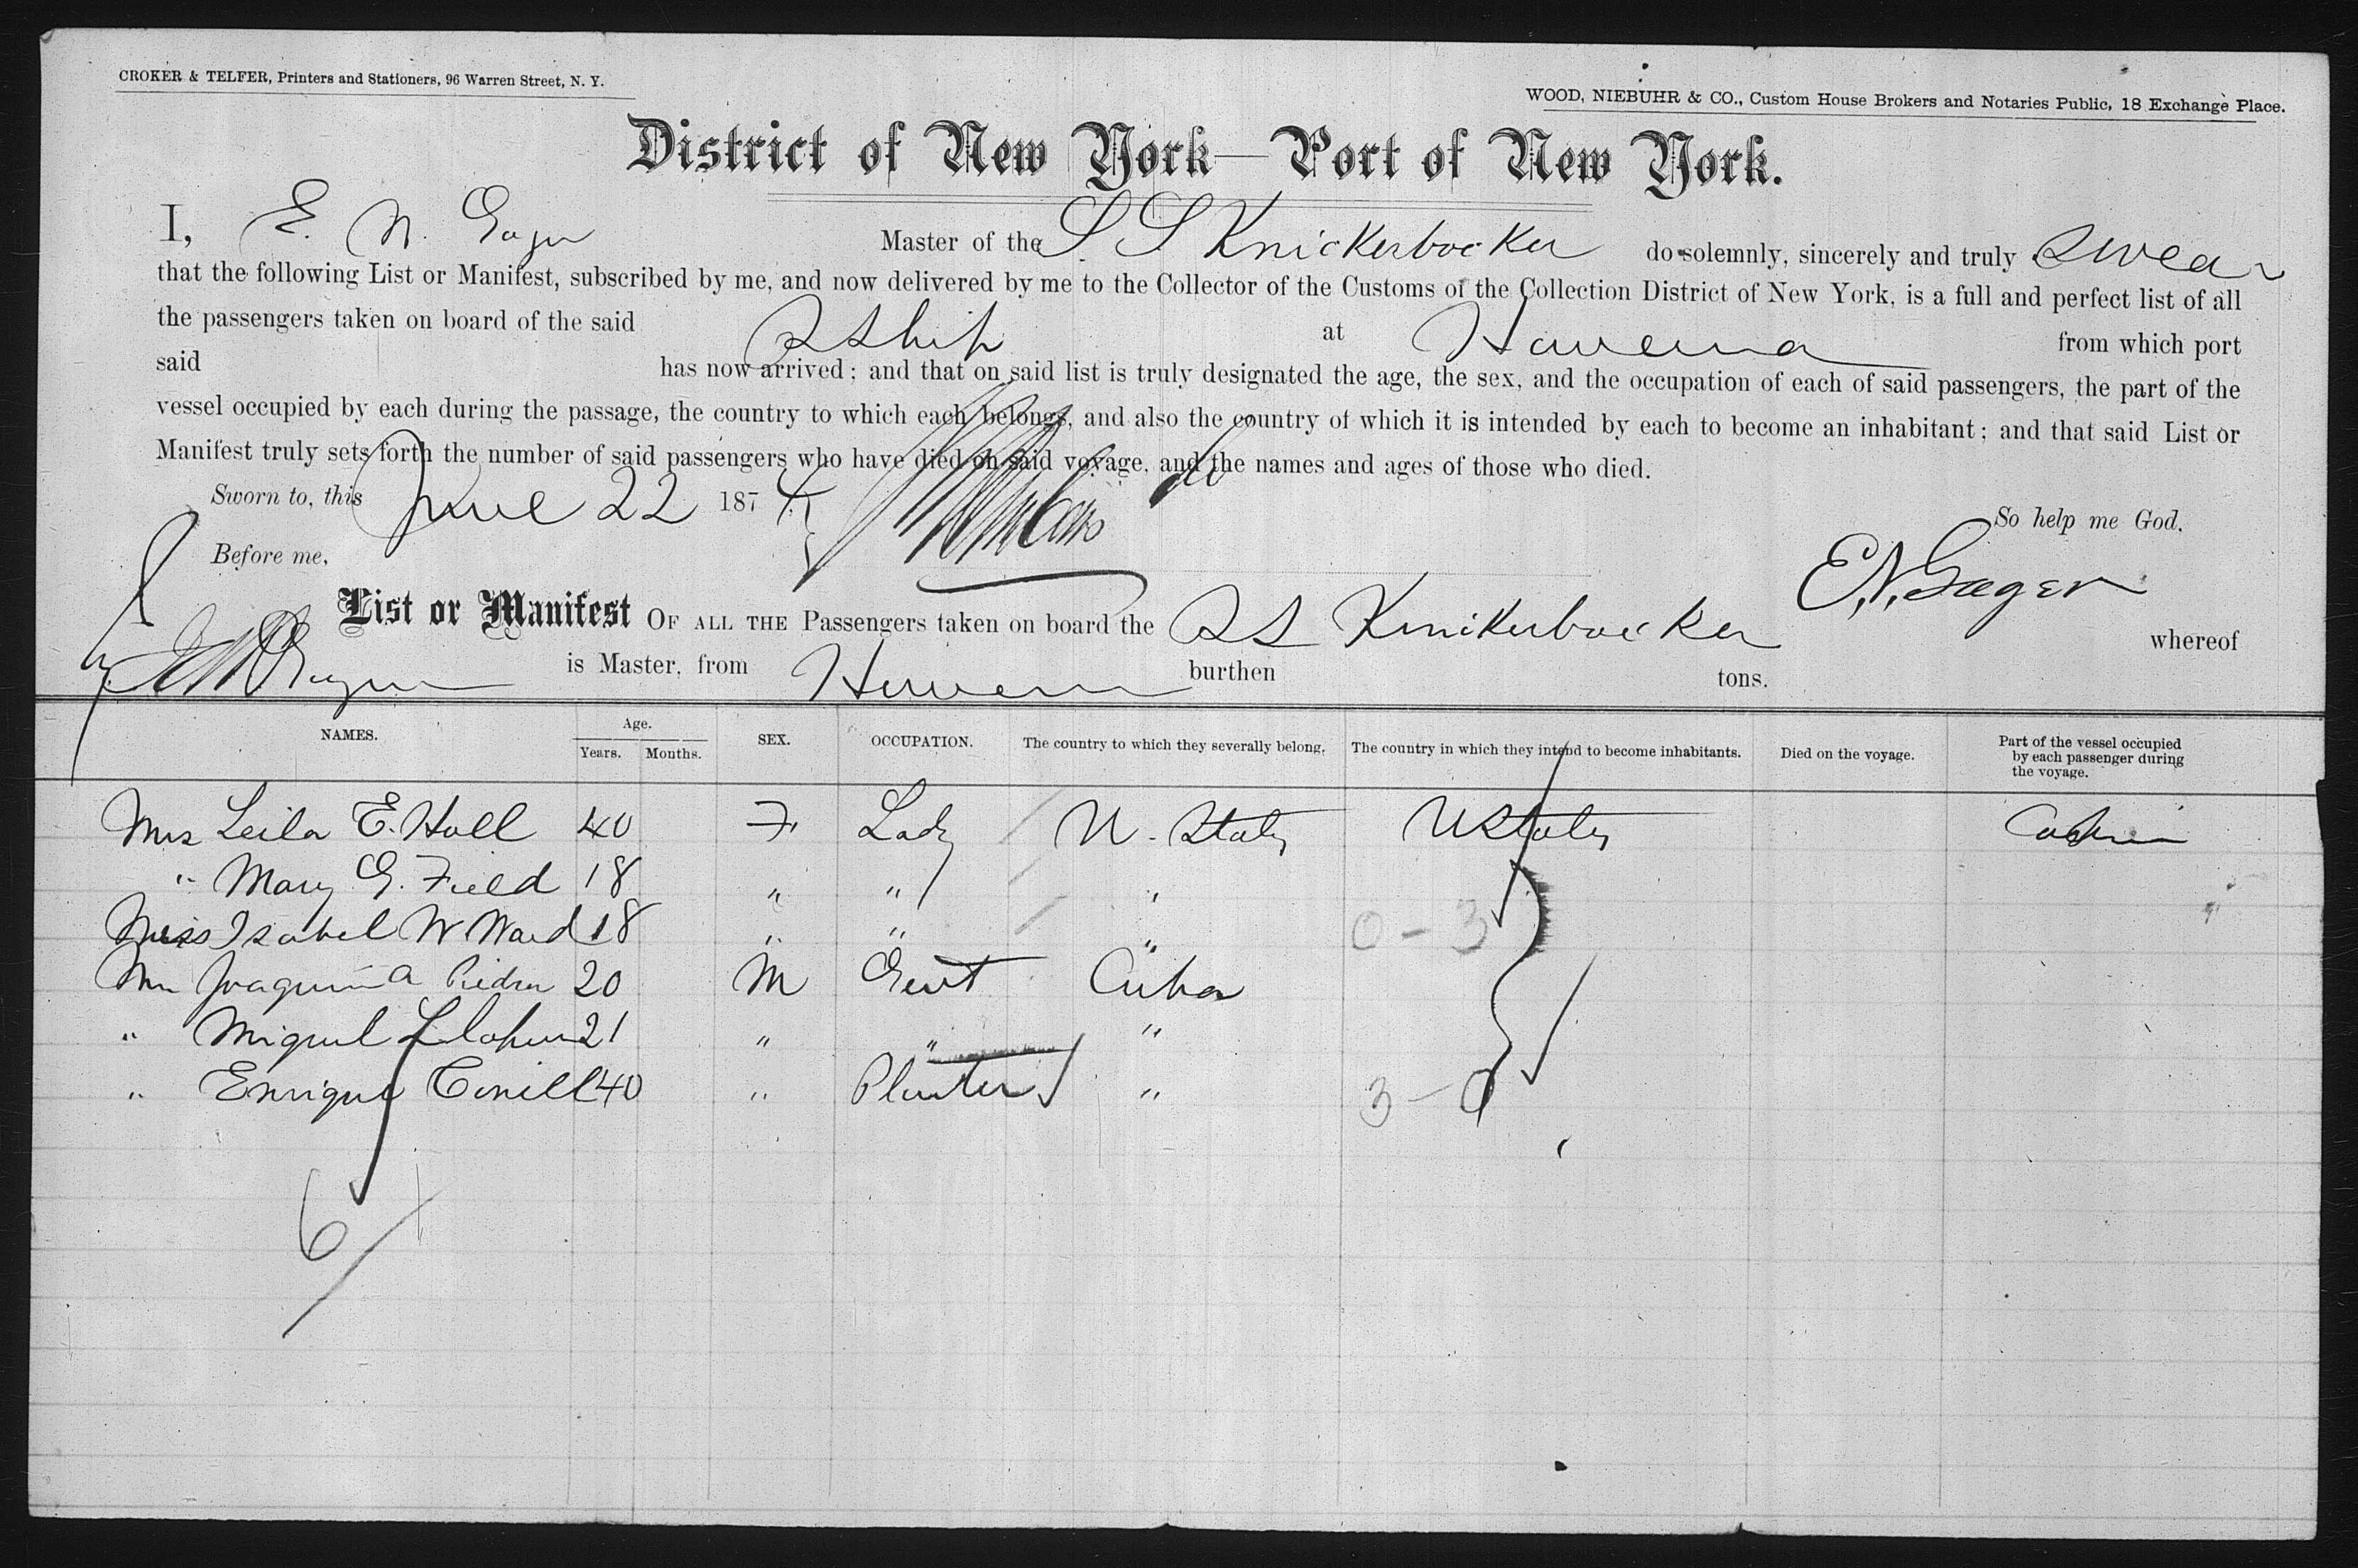 CROKER & TELFER, Printers and Stationers, 96 Warren Street, N. Y.
WOOD, NIEBUHR & CO., Custom House Brokers and Notaries Public, 18 Exchange Place.
District of New York—Port of New York.
I, E. N. Gager Master of the S S Knickerbocker do solemnly, sincerely and truly swear
that the following List or Manifest, subscribed by me, and now delivered by me to the Collector of the Customs of the Collection District of New York, is a full and perfect list of all
the passengers taken on board of the said SShip at Havana from which port
said has now arrived; and that on said list is truly designated the age, the sex, and the occupation of each of said passengers, the part of the
vessel occupied by each during the passage, the country to which each belongs, and also the country of which it is intended by each to become an inhabitant; and that said List or
Manifest truly sets forth the number of said passengers who have died on said voyage, and the names and ages of those who died.
Sworn to, this June 22 1874
So help me God.
Before me,
E. N. Gager
List or Manifest OF ALL THE Passengers taken on board the SS Knickerbocker whereof
E N Gager is Master, from Havana burthen tons.
NAMES. Age. Years. Months. SEX. OCCUPATION. The country to which they severally belong. The country in which they intend to become inhabitants. Died on the voyage. Part of the vessel occupied by each passenger during the voyage.
Mrs Leila E. Hall 40 F Lady U. States U States Cabin
" Mary G. Field 18 " " " "
Miss Isabel W Ward 18 " " " 0 - 3
Mr Joaquin A Piedra 20 M Gent Cuba
" Miguel 21 " " "
" Enrique Conill 40 " Planter " 3 - 0
6